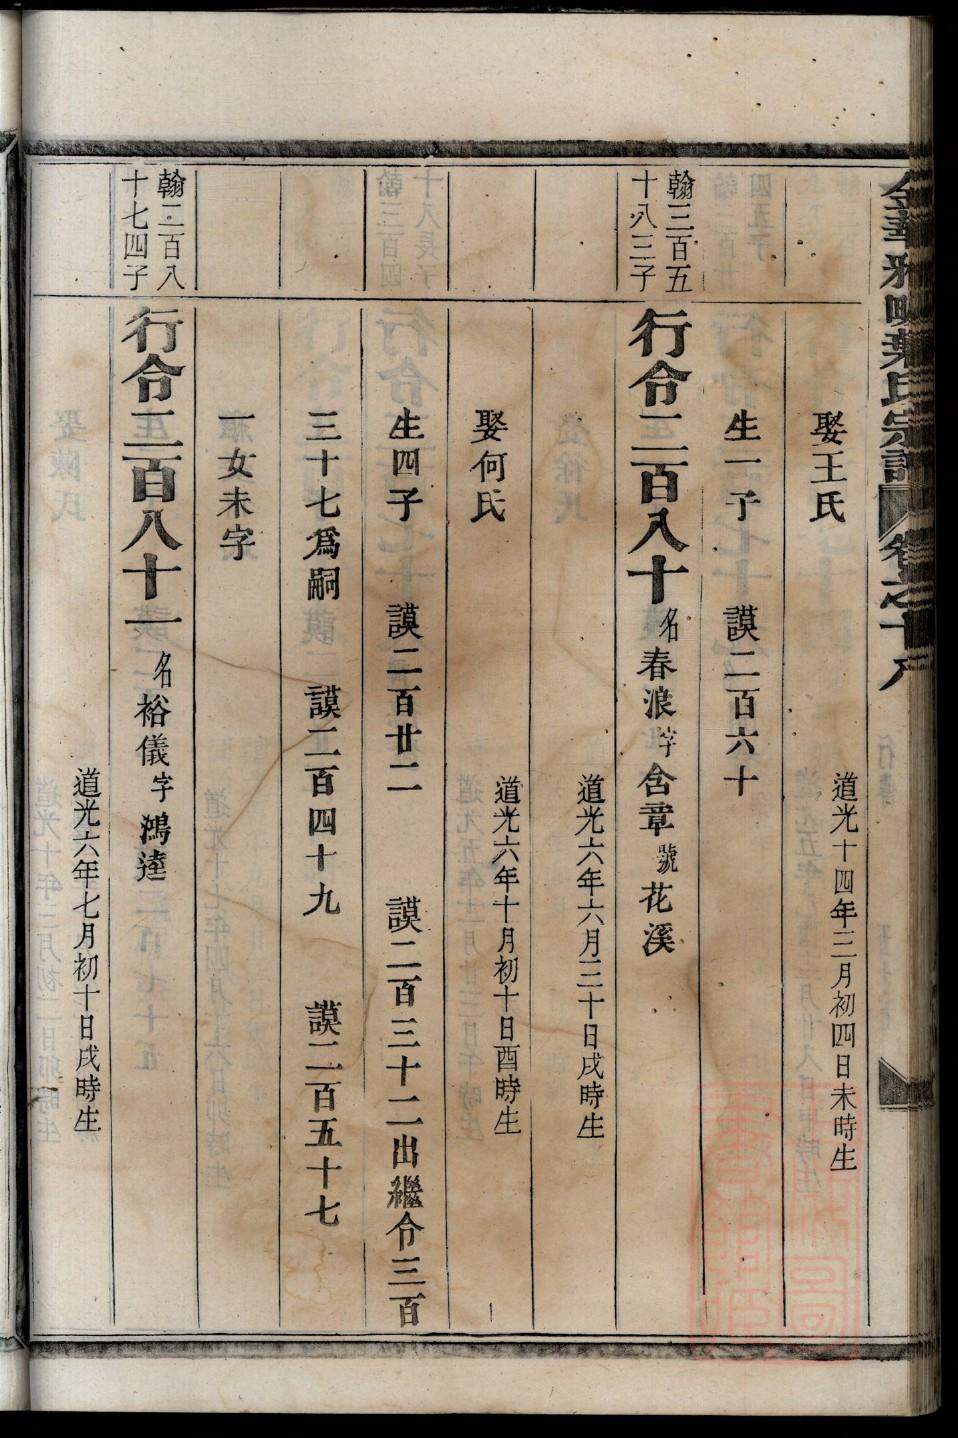 金華雅畈葉氏宗譜 卷之十八
娶王氏 道光十四年三月初四日未時生
生一子 謨二百六十
翰三百五十八三子
行令二百八十 名春浪字含章號花溪
道光六年六月三十日戌時生
娶何氏 道光六年十月初十日酉時生
生四子 謨二百廿二 謨二百三十二出繼令三百
三十七爲嗣 謨二百四十九 謨二百五十七
一女未字
翰二百八十七四子
行令二百八十一 名裕儀字鴻逵
道光六年七月初十日戌時生